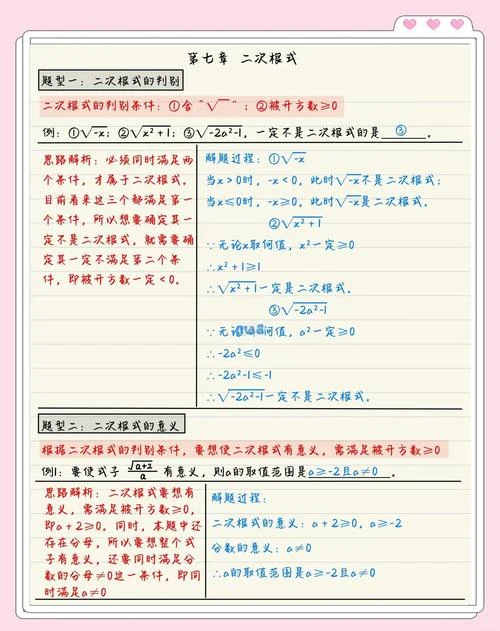 第七章 二次根式
题型一：二次根式的判别
二次根式的判别条件：①含“√‾”；②被开方数≥0
例：①√-x；②√x²+1；③√-2a²-1，一定不是二次根式的是 ③ 。
思路解析：必须同时满足两
个条件，才属于二次根式。
目前看来这三个都满足第一
个条件，所以想要确定其一
定不是二次根式，就需要确
定其一定不满足第二个条
件，即被开方数一定＜0。
解题过程：①√-x
当x＞0时，-x＜0，此时√-x不是二次根式；
当x≤0时，-x≥0，此时√-x是二次根式。
②√x²+1
∵无论x取何值，x²一定≥0
∴x²+1≥1
∴√x²+1一定是二次根式。
③√-2a²-1
∵无论何值，a²一定≥0
∴-2a²≤0
∴-2a²-1≤-1
∴√-2a²-1一定不是二次根式。
题型二：二次根式的意义
根据二次根式的判别条件，要想使二次根式有意义，需满足被开方数≥0
例1：要使式子 √a+2/a 有意义，则a的取值范围是a≥-2且a≠0 。
思路解析：二次根式要想有
意义，需满足被开方数≥0，
即a+2≥0。同时，本题中还
存在分母，所以要想整个式
子有意义，还要同时满足分
数的分母≠0这一条件，即同
时满足a≠0
解题过程：
二次根式的意义：a+2≥0，a≥-2
分数的意义：a≠0
∴a的取值范围是a≥-2且a≠0